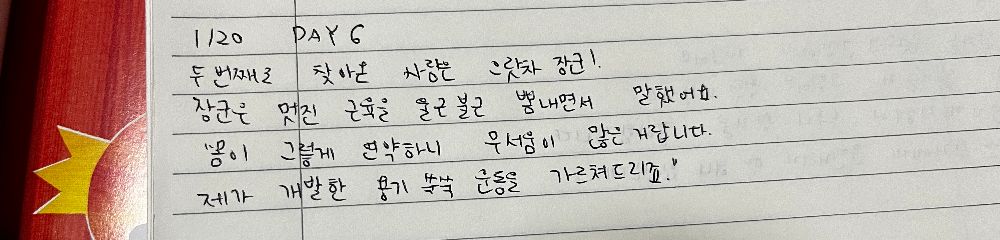 1/20 DAY 6
두번째로 찾아온 사람은 으랏차 장군!
장군은 멋진 근육을 울근불근 뽐내면서 말했어요.
"몸이 그렇게 연약하니 무서움이 많은 거랍니다.
제가 개발한 용기 쑥쑥 운동을 가르쳐드리죠."